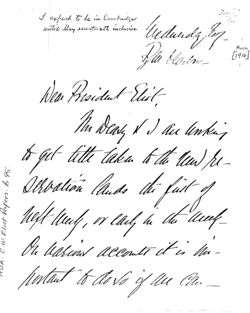 I expect to be in Cambridge
until May seventeenth inclusive
Wednesday Eve.
[March
1916]
Dear President Eliot,
Mr Deasy & I are working
to get title taken to the new re-
servation lands the first of
next week, or early in the week.
On various accounts it is im-
portant to do so if we can —
HUA: C.W. Eliot Papers, b. 95